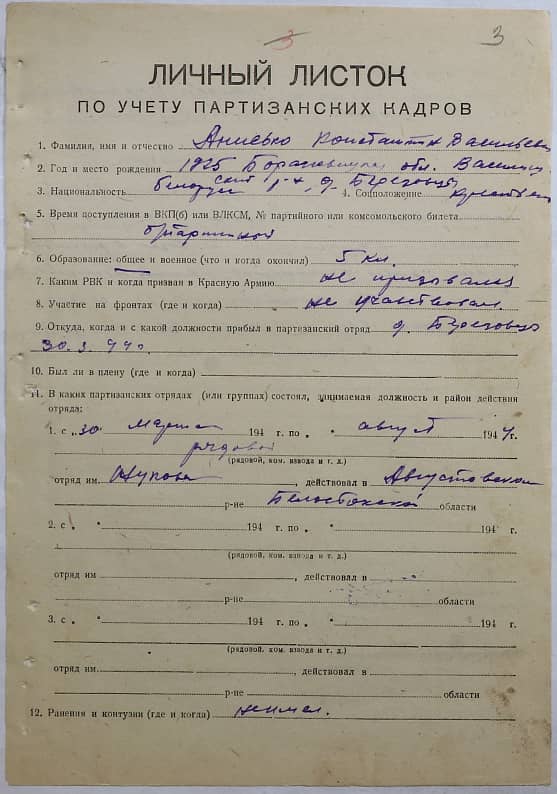 3 3
ЛИЧНЫЙ ЛИСТОК
ПО УЧЕТУ ПАРТИЗАНСКИХ КАДРОВ
1. Фамилия, имя и отчество Анисько Константин Васильевич
2. Год и место рождения 1925 обл.
3. Национальность белорус р-н, д. Березовцы 4. Соцположение
5. Время доступления в ВКП(б) или ВЛКСМ, № партийного или комсомольского билета
6. Образование: общее и военное (что и когда окончил) 5 кл.
7. Каким РВК и когда призван в Красную Армию не призывался
8. Участие на фронтах (где и когда) не участвовал
9. Откуда, когда и с какой должности прибыл в партизанский отряд д. Березовцы
30.3.44г.
10. Был ли в плену (где и когда)
11. В каких партизанских отрядах (или группах) состоял, занимаемая должность и район действия
отряда:
1. с „30 марта 194 г. по „ август 1944г.
рядовой
(рядовой, ком. взвода и т. д.)
отряд им. Жукова, действовал в Августовском
р-не Белостокской области
2. с „ " 194 г. по „ " 194 г.
(рядовой, ком. взвода и т. д.)
отряд им , действовал в
р-не области
3. с „ " 194 г. по „ " 194 г.
(рядовой, ком. взвода и т. д.)
отряд им. , действовал в
р-не области
12. Ранения и контузии (где и когда) не имел.